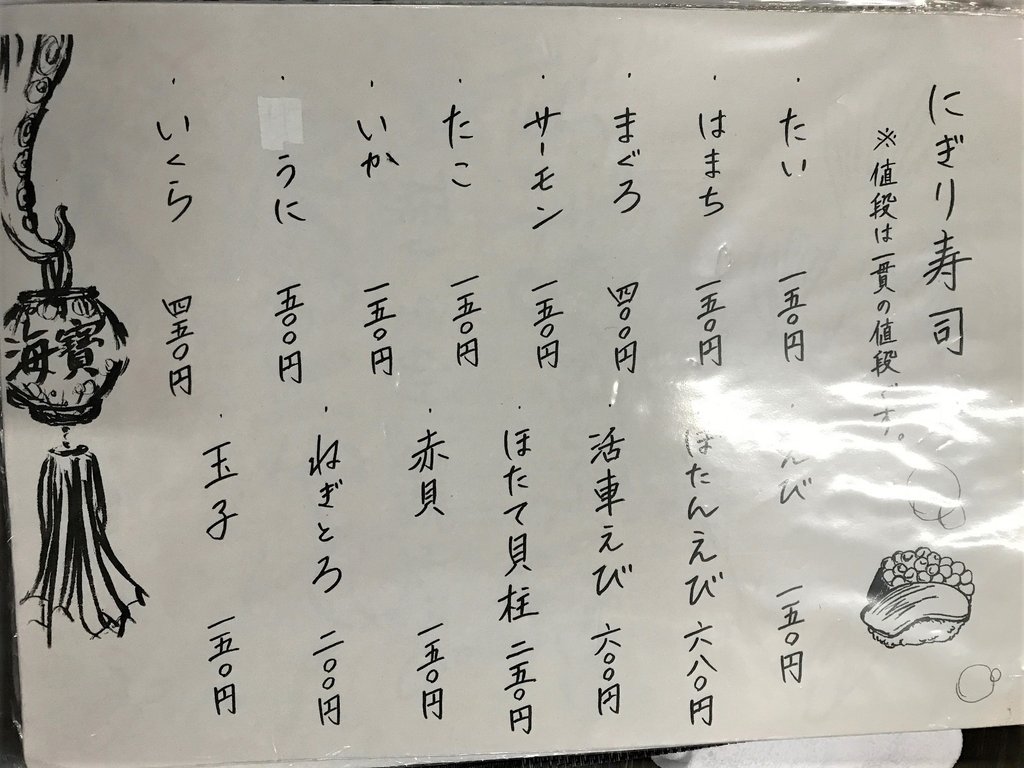 にぎり寿司
※値段は一貫の値段です。
・たい 一五〇円
・はまち 一五〇円
・まぐろ 四〇〇円
・サーモン 一五〇円
・たこ 一五〇円
・いか 一五〇円
・うに 一五〇円
・いくら 四五〇円
・えび 一五〇円
・ぼたんえび 六八〇円
・活車えび 六〇〇円
・ほたて貝柱 二五〇円
・赤貝 一五〇円
・ねぎとろ 二〇〇円
・玉子 一五〇円
海寶